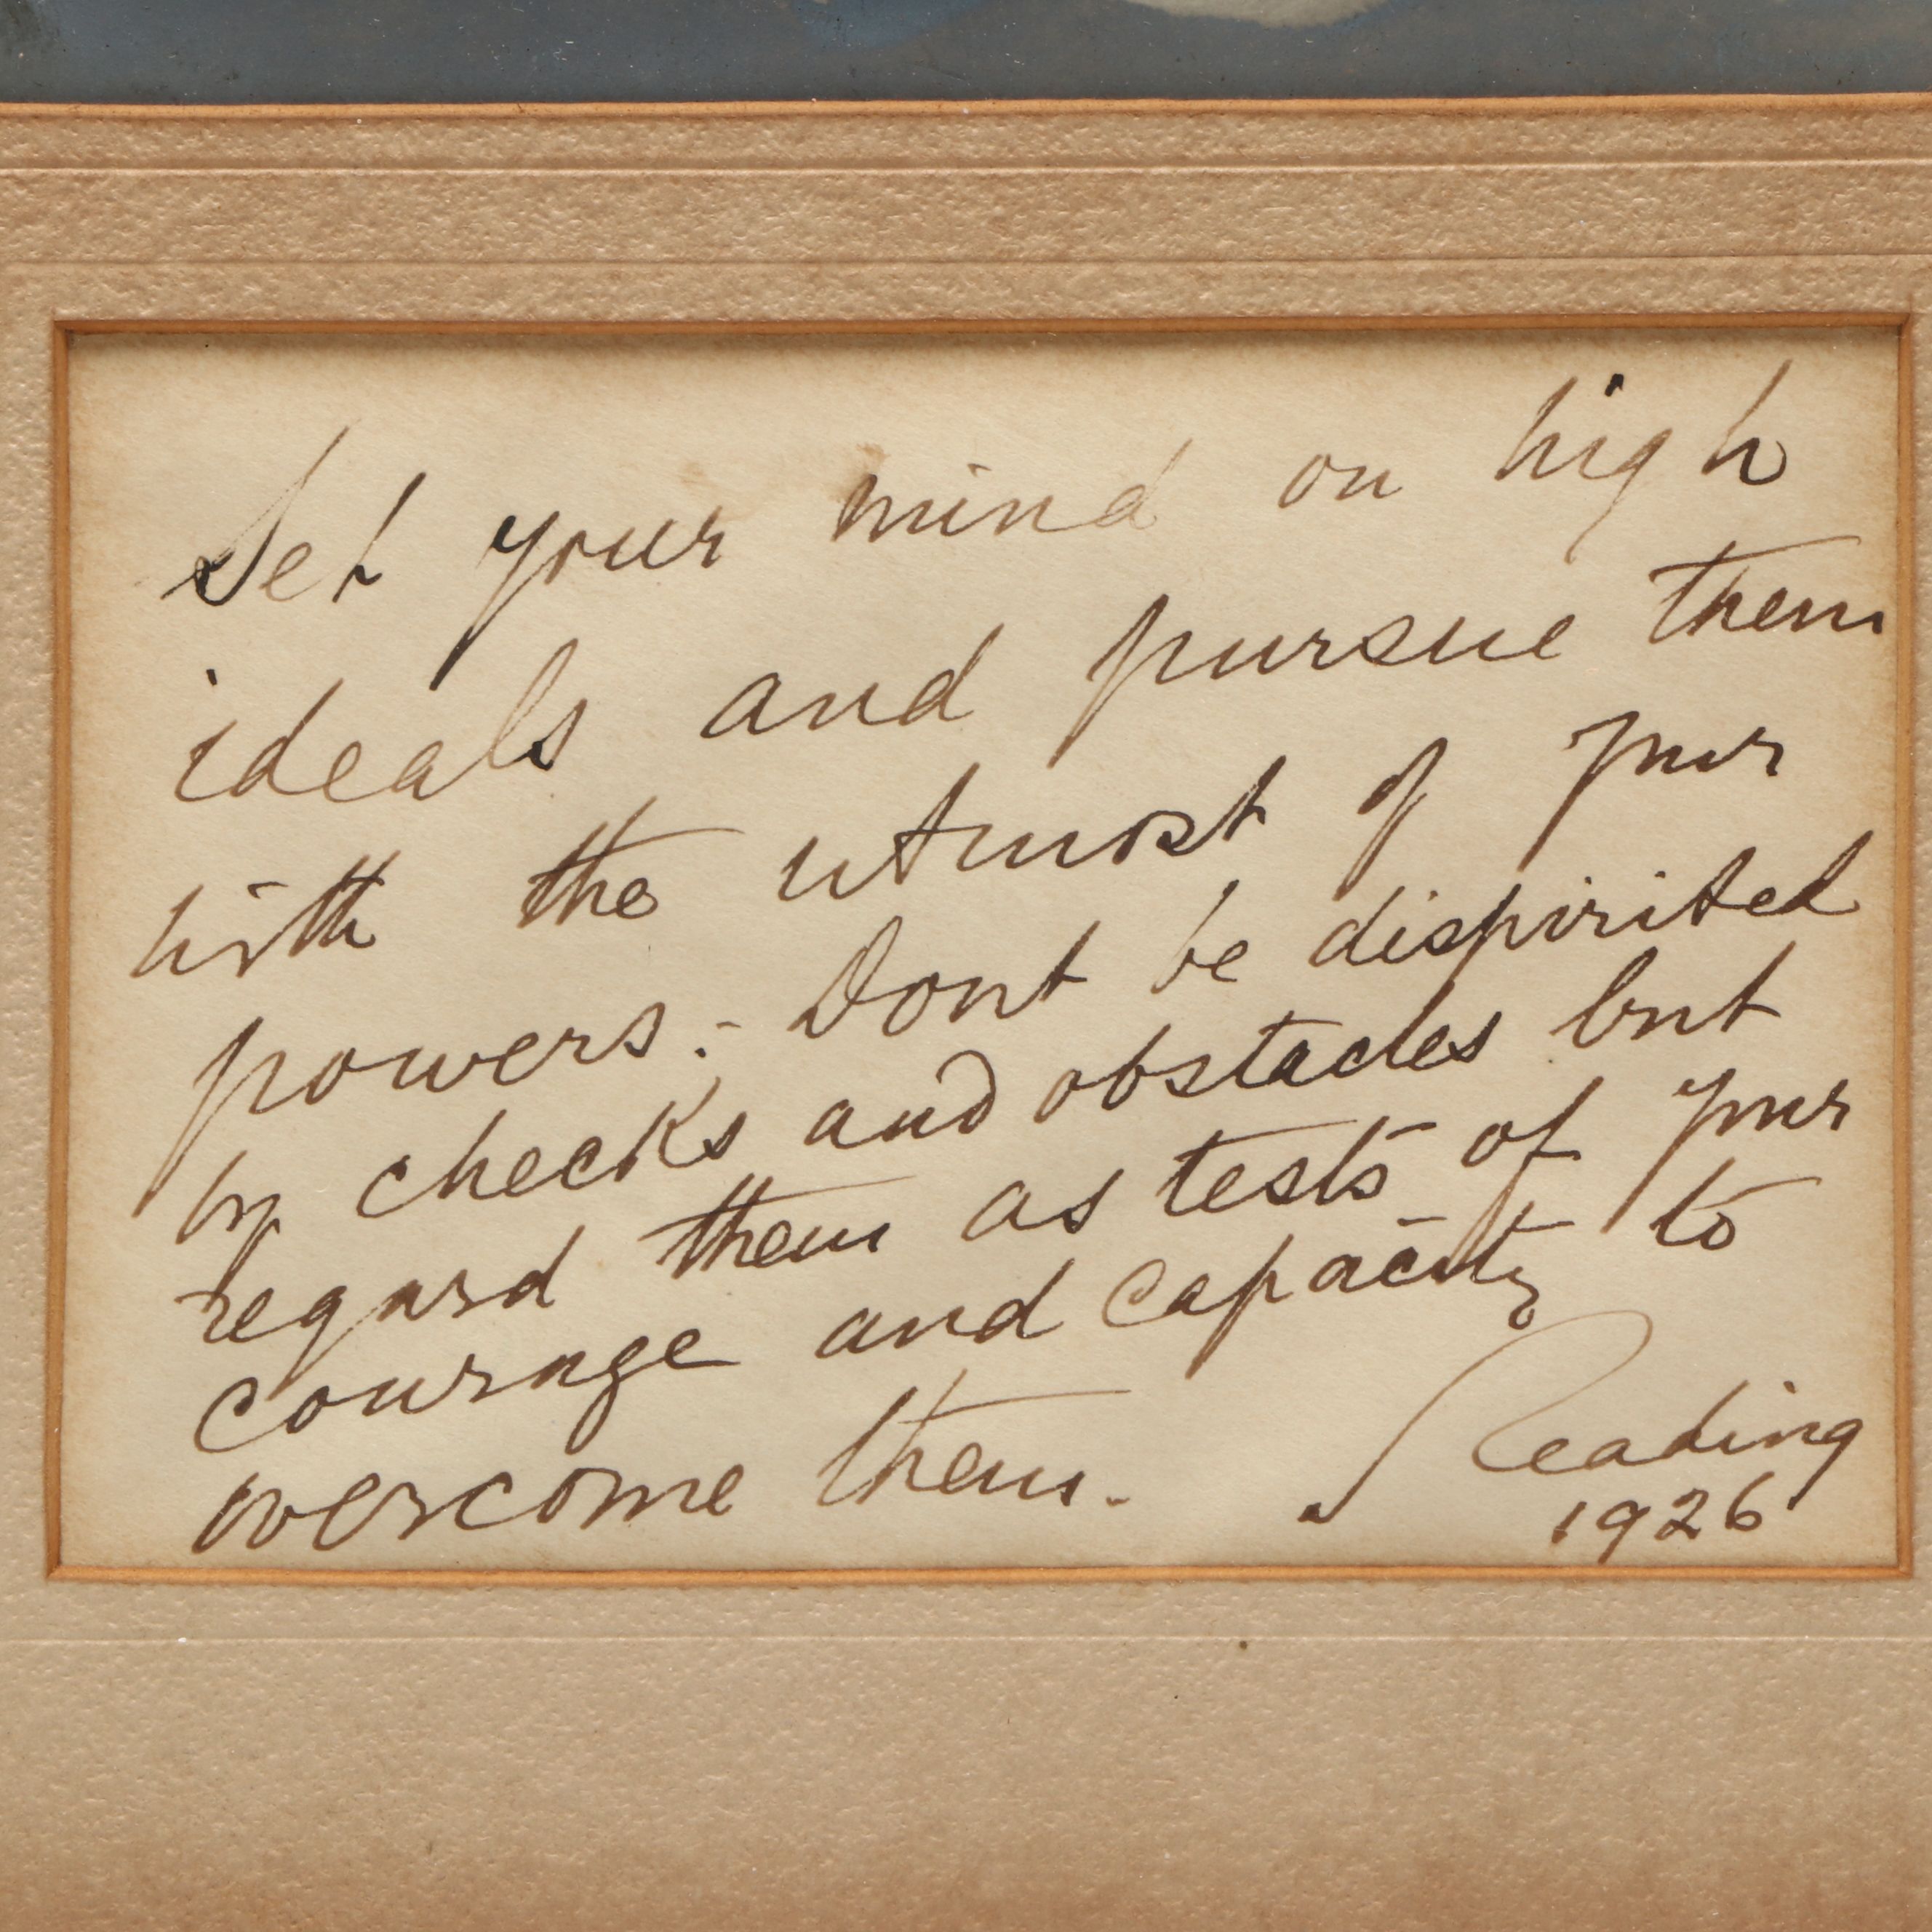 Set your mind on high
ideals and pursue them
with the utmost of your
powers :- Dont be dispirited
by checks and obstacles but
regard them as tests of your
courage and capacity to
overcome them.
Reading
1926